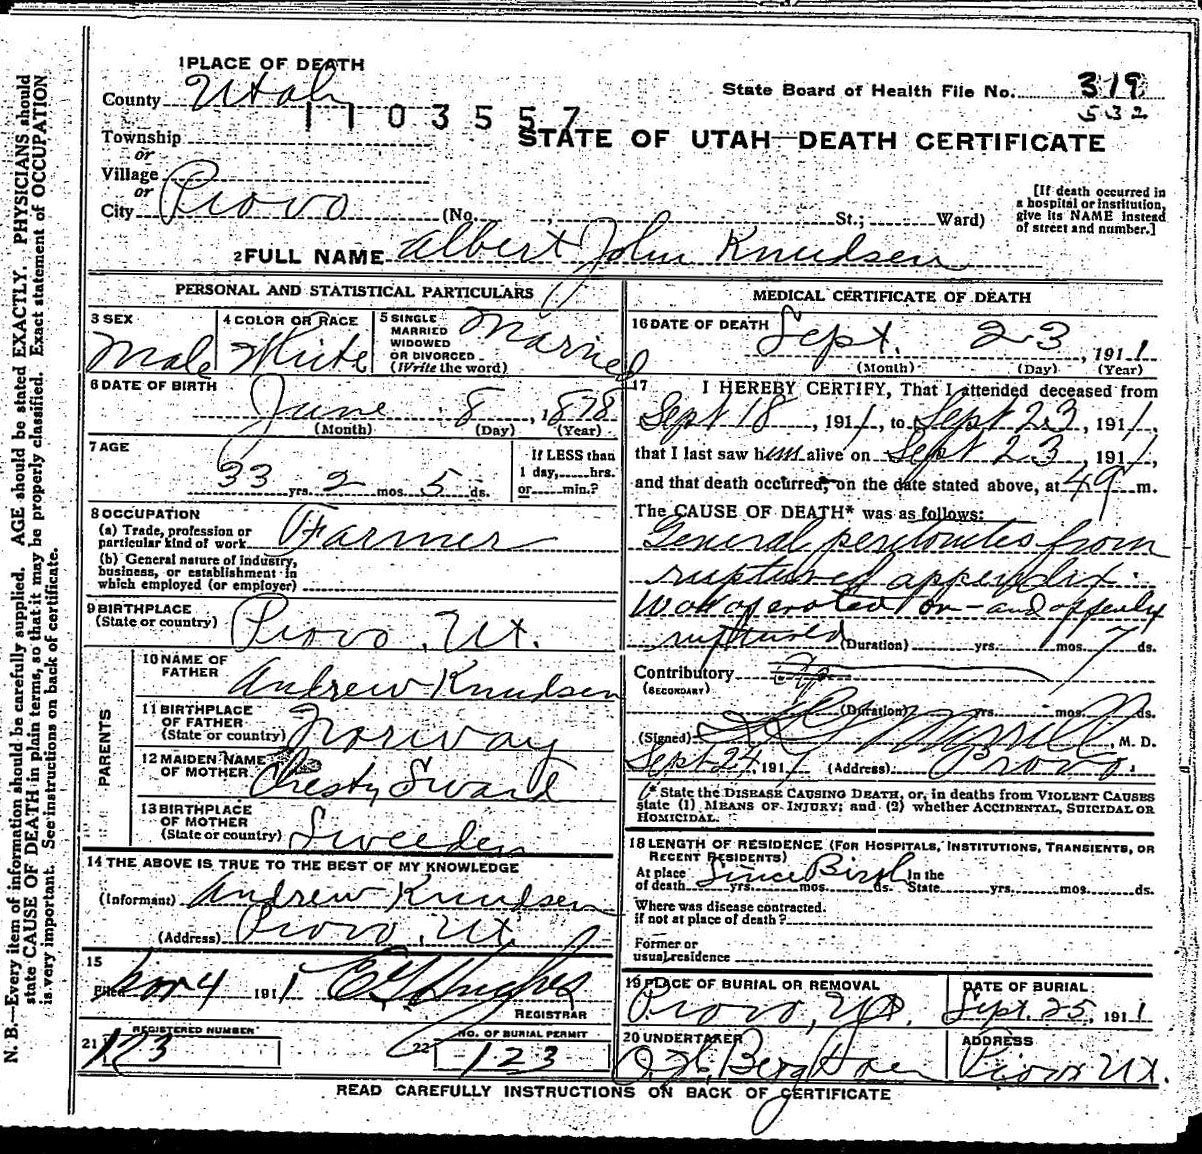 1 PLACE OF DEATH
County Utah
1103557
State Board of Health File No. 319
532
STATE OF UTAH—DEATH CERTIFICATE
Township
or
Village
or
City Provo (No. , St.; Ward)
[If death occurred in
a hospital or institution,
give its NAME instead
of street and number.]
2 FULL NAME Albert John Knudsen
PERSONAL AND STATISTICAL PARTICULARS
3 SEX
Male
4 COLOR OR RACE
White
5 SINGLE
MARRIED
WIDOWED
OR DIVORCED
(Write the word)
Married
6 DATE OF BIRTH
June 8, 1878
(Month) (Day) (Year)
7 AGE
33 yrs. 2 mos. 5 ds.
If LESS than
1 day, hrs.
or min.?
8 OCCUPATION
(a) Trade, profession or
particular kind of work Farmer
(b) General nature of industry,
business, or establishment in
which employed (or employer)
9 BIRTHPLACE
(State or country) Provo, Ut.
PARENTS
10 NAME OF
FATHER Andrew Knudsen
11 BIRTHPLACE
OF FATHER
(State or country) Norway
12 MAIDEN NAME
OF MOTHER Chesty Sward
13 BIRTHPLACE
OF MOTHER
(State or country) Sweeden
14 THE ABOVE IS TRUE TO THE BEST OF MY KNOWLEDGE
(Informant) Andrew Knudsen
(Address) Provo, Ut.
15
Filed Nov 4 1911 Hughes
REGISTRAR
REGISTERED NUMBER
21 123
NO. OF BURIAL PERMIT
22 123
MEDICAL CERTIFICATE OF DEATH
16 DATE OF DEATH Sept. 23, 1911
(Month) (Day) (Year)
17 I HEREBY CERTIFY, That I attended deceased from
Sept 18, 1911, to Sept 23, 1911,
that I last saw him alive on Sept 23, 1911,
and that death occurred, on the date stated above, at 49 m.
The CAUSE OF DEATH* was as follows:
General peritonites from
ruptured appendix.
Was operated on - and
ruptured (Duration) yrs. mos. 7 ds.
Contributory
(SECONDARY)
(Duration) yrs. mos. ds.
(Signed) Merrill, M. D.
Sept 24, 191 (Address) Provo
[* State the DISEASE CAUSING DEATH, or, in deaths from VIOLENT CAUSES
state (1) MEANS OF INJURY; and (2) whether ACCIDENTAL, SUICIDAL OR
HOMICIDAL.
18 LENGTH OF RESIDENCE (FOR HOSPITALS, INSTITUTIONS, TRANSIENTS, OR
RECENT RESIDENTS)
At place
of death Since Birth yrs. mos. ds. In the
State yrs. mos. ds.
Where was disease contracted.
if not at place of death?
Former or
usual residence
19 PLACE OF BURIAL OR REMOVAL
Provo, Ut.
DATE OF BURIAL
Sept. 25, 1911
20 UNDERTAKER
Berg
ADDRESS
Provo Ut.
READ CAREFULLY INSTRUCTIONS ON BACK OF CERTIFICATE
N. B.—Every item of information should be carefully supplied. AGE should be stated EXACTLY. PHYSICIANS should
state CAUSE OF DEATH in plain terms, so that it may be properly classified. Exact statement of OCCUPATION
is very important. See instructions on back of certificate.